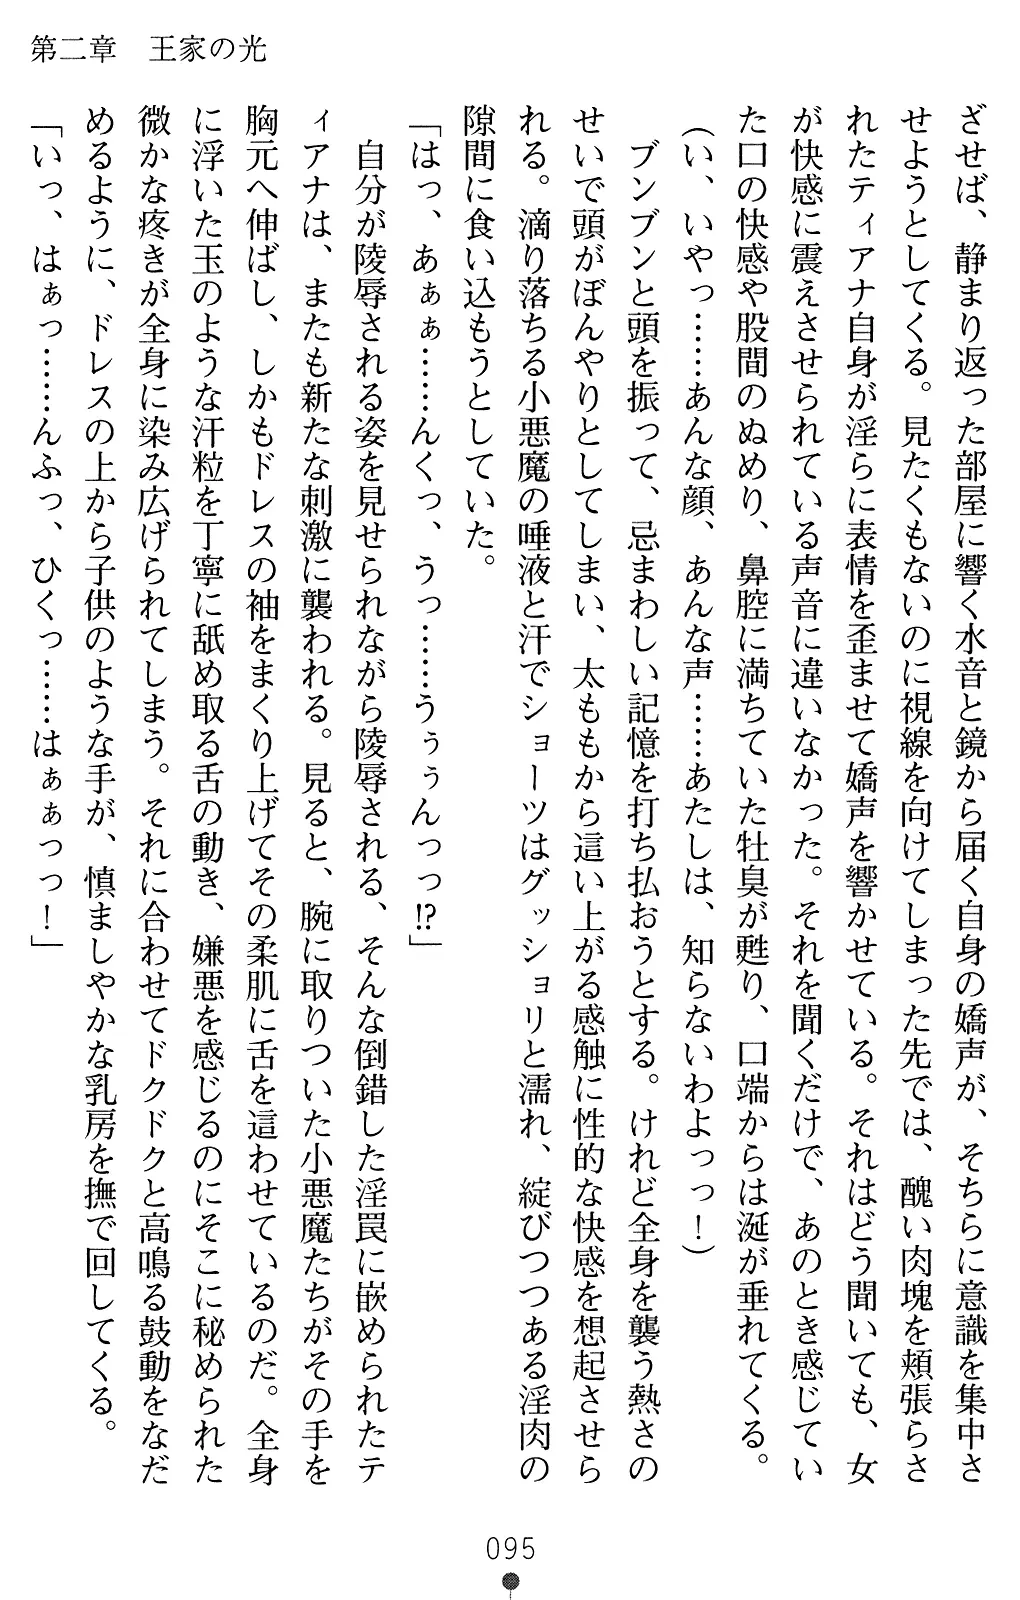 第二章　王家の光
ざせば、静まり返った部屋に響く水音と鏡から届く自身の嬌声が、そちらに意識を集中さ
せようとしてくる。見たくもないのに視線を向けてしまった先では、醜い肉塊を頬張らさ
れたティアナ自身が淫らに表情を歪ませて嬌声を響かせている。それはどう聞いても、女
が快感に震えさせられている声音に違いなかった。それを聞くだけで、あのとき感じてい
た口の快感や股間のぬめり、鼻腔に満ちていた牡臭が甦り、口端からは涎が垂れてくる。
（い、いやっ……あんな顔、あんな声……あたしは、知らないわよっっ！）
　ブンブンと頭を振って、忌まわしい記憶を打ち払おうとする。けれど全身を襲う熱さの
せいで頭がぼんやりとしてしまい、太ももから這い上がる感触に性的な快感を想起させら
れる。滴り落ちる小悪魔の唾液と汗でショーツはグッショリと濡れ、綻びつつある淫肉の
隙間に食い込もうとしていた。
「はっ、あぁぁ……んくっ、うっ……うぅぅんっっ!?」
　自分が陵辱される姿を見せられながら陵辱される、そんな倒錯した淫罠に嵌められたテ
ィアナは、またも新たな刺激に襲われる。見ると、腕に取りついた小悪魔たちがその手を
胸元へ伸ばし、しかもドレスの袖をまくり上げてその柔肌に舌を這わせているのだ。全身
に浮いた玉のような汗粒を丁寧に舐め取る舌の動き、嫌悪を感じるのにそこに秘められた
微かな疼きが全身に染み広げられてしまう。それに合わせてドクドクと高鳴る鼓動をなだ
めるように、ドレスの上から子供のような手が、慎ましやかな乳房を撫で回してくる。
「いっ、はぁっ……んふっ、ひくっ……はぁぁっっ！」
095